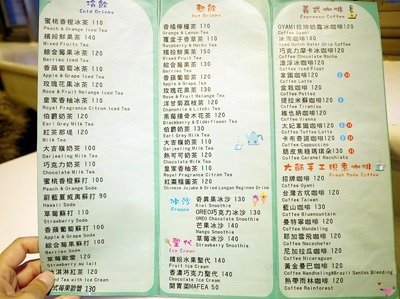 冷飲
Cold Drinks
蜜桃香橙冰茶 110
Peach & Orange Iced Tea
繽紛鮮果茶 140
Mixed Fruit Tea
綜合蘋果冰茶 120
Apple & Mixed Berries Iced Tea
香頌葡萄冰茶 120
Apple & Grape Iced Tea
玫瑰花果冰茶 130
Rose & Fruit Melange Iced Tea
皇家香柚冰茶 110
Royal Fragrance Citron Iced Tea
伯爵奶茶 120
Earl Grey Milk Tea
紅茶那堤 120
Milk Tea
大吉嶺奶茶 100
Darjeeling Milk Tea
巧克力奶茶 110
Chocolate Milk Tea
蜜桃香橙蘇打 90
Peach & Orange Soda
蔚藍夏威夷蘇打 90
Hawaii Soda
草莓蘇打 110
Strawberry Soda
香頌葡萄蘇打 120
Apple & Grape Soda
綜合莓果蘇打 110
Berries Soda
草莓歐蕾 120
Strawberry au lait
冰淇淋紅茶 120
Iced Tea With Ice Cream
130
熱飲
Hot Drinks
香橘檸檬茶 110
Orange & Lemon Tea
Raspberry & Herbs Tea
繽紛鮮果茶 150
Mixed Fruit Tea
綜合蘋果茶 120
香頌葡萄茶 120
Apple & Grape Tea
玫瑰花果茶 130
Rose & Fruit Melange Tea
洋甘菊荔枝茶 120
黑莓接骨木花茶 120
Blackberry & Elderflower Tea
伯爵奶茶 130
Earl Grey Milk Tea
大吉嶺奶茶 110
Darjeeling Milk Tea
熱可可奶茶 120
Chocolate Milk Tea
皇家香柚茶 110
Royal Fragrance Citron Tea
紅棗桂圓茶 120
Chinese Jujube & Dried Longan Regimen Drink
冰沙
Frappe
香異果冰沙 130
Kiwi Smoothie
OREO巧克力冰沙 130
OREO Chocolate Smoothie
芒果冰沙 140
Mango Smoothie
草莓冰沙 140
Strawberry Smoothie
聖代
Ice Cream
繽紛水果聖代 140
Fruit Ice Cream
香濃巧克力聖代 140
Chocolate Ice Cream
開胃菜MAFEA 50
義式咖啡
Espresso Coffee
OYAMI拉牌奶霜冰咖啡 120
冰滴咖啡 140
Iced Dutch Water Drip Coffee
巧克力摩卡冰咖啡 120
Chocolate Mocha Iced Coffee
漂浮冰咖啡 120
Float Iced Coffee
拿鐵咖啡 120
Coffee Latte
維也納咖啡 120
Coffee Vienna
提拉米蘇咖啡 120
Coffee Tiramisu
卡布奇諾咖啡 120
Coffee Cappuccino
脆皮焦糖瑪琪朵 130
Coffee Caramel Macchiato
大師手工現煮咖啡
招牌咖啡 120
Coffee Oyami
Coffee Old Taiwan
藍山咖啡 120
Coffee Bluemountain
曼特寧咖啡 120
Coffee Mandeling
耶加雪啡咖啡 120
Coffee Yirgacheffe
尼加拉瓜咖啡 120
Coffee Nicaragua
黃金曼巴咖啡 120
Coffee Mandheling&Brazil Santos Blending
熱帶雨林咖啡 120
Coffee Rainforest